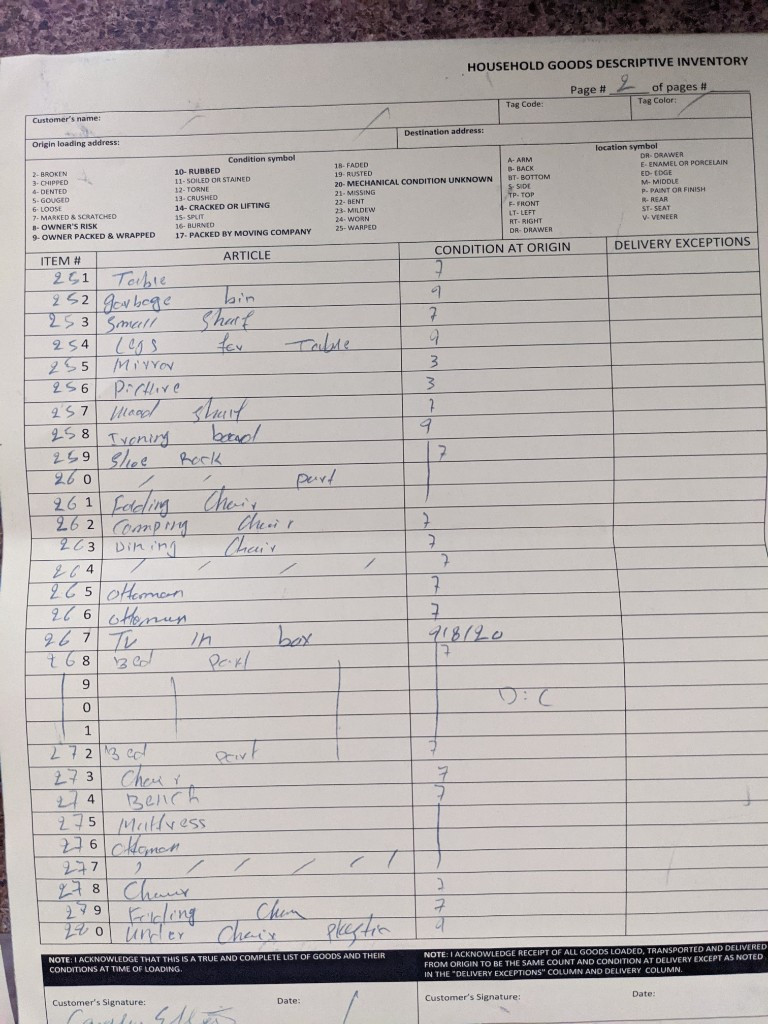 HOUSEHOLD GOODS DESCRIPTIVE INVENTORY
Page # 2 of pages #
Customer's name:
Tag Code:
Tag Color:
Origin loading address:
Destination address:
Condition symbol
2- BROKEN
3- CHIPPED
4- DENTED
5- GOUGED
6- LOOSE
7- MARKED & SCRATCHED
8- OWNER'S RISK
9- OWNER PACKED & WRAPPED
10- RUBBED
11- SOILED OR STAINED
12- TORNE
13- CRUSHED
14- CRACKED OR LIFTING
15- SPLIT
16- BURNED
17- PACKED BY MOVING COMPANY
18- FADED
19- RUSTED
20- MECHANICAL CONDITION UNKNOWN
21- MISSING
22- BENT
23- MILDEW
24- WORN
25- WARPED
location symbol
A- ARM
B- BACK
BT- BOTTOM
S- SIDE
TP- TOP
F- FRONT
LT- LEFT
RT- RIGHT
DR- DRAWER
DR- DRAWER
E- ENAMEL OR PORCELAIN
ED- EDGE
M- MIDDLE
P- PAINT OR FINISH
R- REAR
ST- SEAT
V- VENEER
ITEM # ARTICLE CONDITION AT ORIGIN DELIVERY EXCEPTIONS
251 Table 7
252 garbage bin 9
253 Small Sharf 7
254 Legs for Table 9
255 Mirror 3
256 Picture 3
257 Wood sharf 7
258 Ironing board 9
259 Shoe Rack 7
260 / / part
261 Folding Chair
262 Camping Chair 7
263 Dining Chair 7
264 / / / / 7
265 Ottoman 7
266 Ottoman 7
267 TV in box 9/8/20
268 Bed part 7
9
0 D:C
1
272 Bed part 7
273 Chair 7
274 Bench 7
275 Mattress
276 Ottoman
277 / / / / / /
278 Chair 7
279 Folding Chair 7
280 Under Chair plastic 9
NOTE: I ACKNOWLEDGE THAT THIS IS A TRUE AND COMPLETE LIST OF GOODS AND THEIR
CONDITIONS AT TIME OF LOADING.
NOTE: I ACKNOWLEDGE RECEIPT OF ALL GOODS LOADED, TRANSPORTED AND DELIVERED
FROM ORIGIN TO BE THE SAME COUNT AND CONDITION AT DELIVERY EXCEPT AS NOTED
IN THE "DELIVERY EXCEPTIONS" COLUMN AND DELIVERY COLUMN.
Customer's Signature: Date:
Customer's Signature: Date: